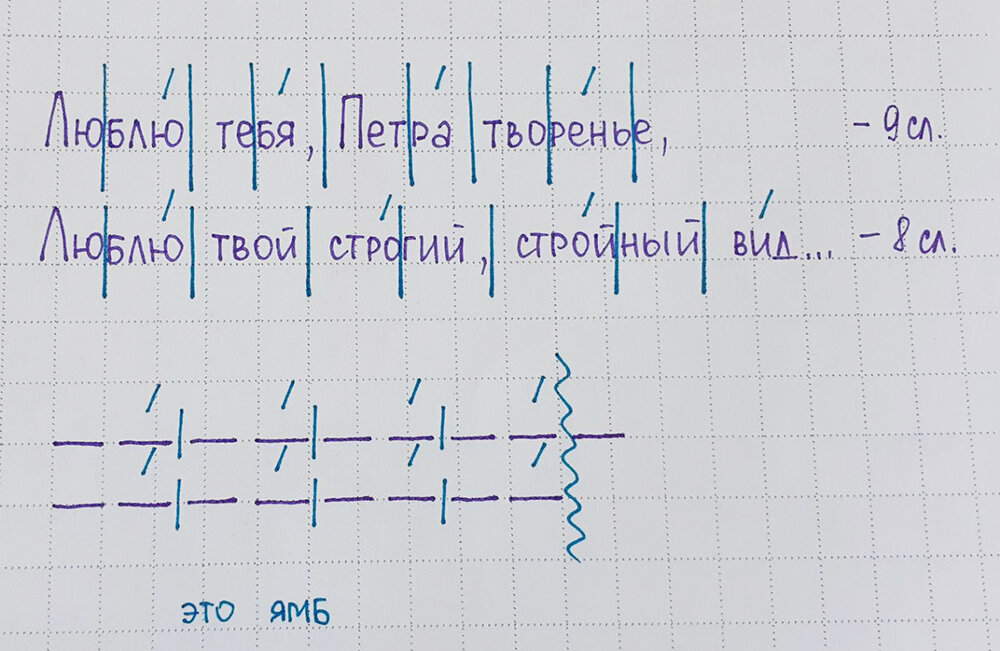 Люблю тебя, Петра творенье, - 9 сл.
Люблю твой строгий, стройный вид... - 8 сл.
это ямб